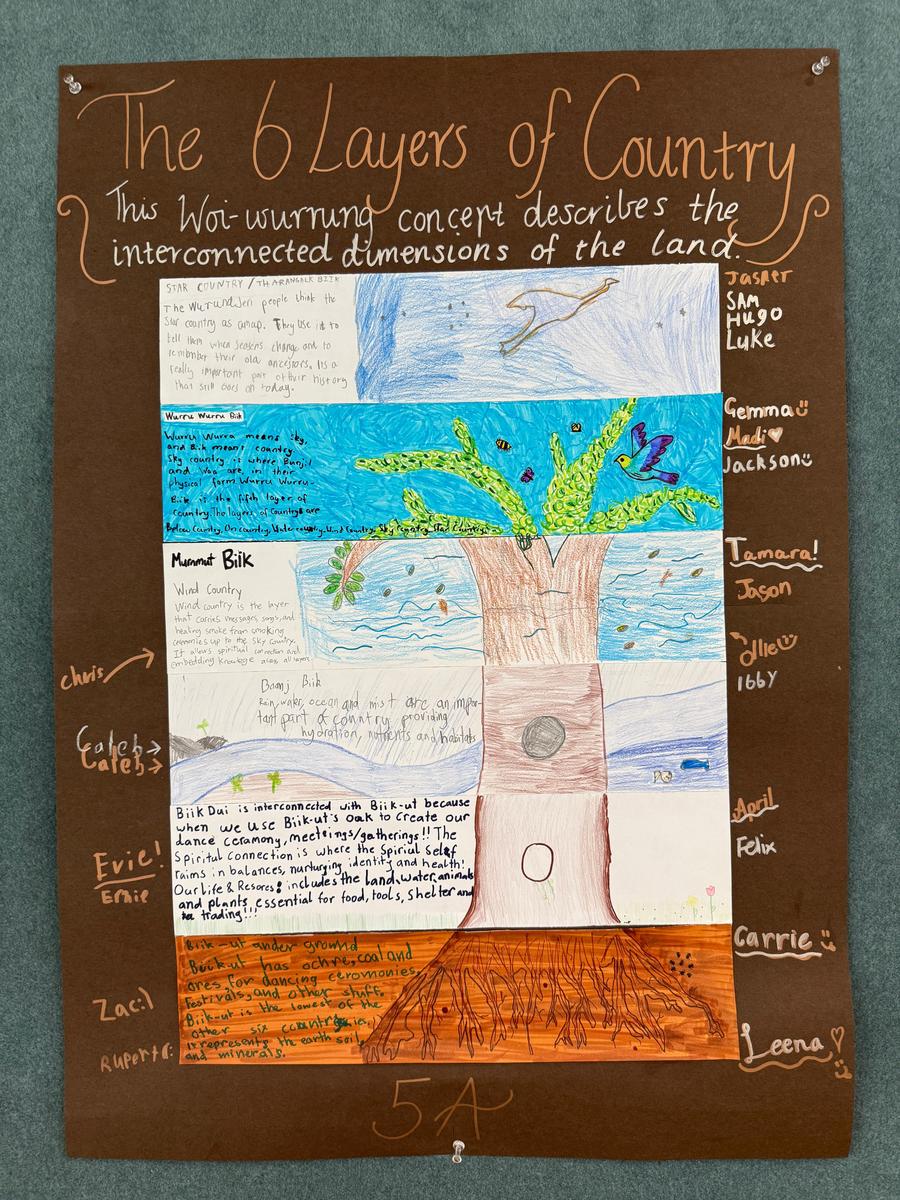 The 6 Layers of Country
This Woi-wurrung concept describes the
interconnected dimensions of the land.
STAR COUNTRY / THARANGALK BIIK
The Wurundjeri people think the
Star country as a map. They use it to
tell them when seasons change and to
remember their old ancestors. Its a
really important part of their history
that still goes on today.
Jasper
SAM
Hugo
Luke
Wurru Wurru Biik
Wurru Wurra means Sky,
and Biik means country.
Sky country is where Bunjil
and Waa are, in their
physical form. Wurru Wurru-
Biik is the fifth layer of
Country. The layers of Country are
Below Country, On country, Water country, Wind Country, Sky Country, Star Country.
Gemma
Madi
Jackson
Murnmut Biik
Wind Country
Wind country is the layer
that carries messages, songs, and
healing smoke from smoking
ceremonies up to the Sky Country.
It allows spiritual connection and
embedding knowledge across all layers
Tamara!
Jason
Ollie
Ibby
Chris
Baanj Biik
Rain, water, ocean and mist are an impor-
tant part of country, providing
hydration, nutrients and habitats
Caleb
Caleb
Biik Dui is interconnected with Biik-ut because
when we use Biik-ut's oak to create our
dance ceramony, meetings/gatherings!! The
Spiritul Connection is where the Spiriul Self
raims in balances, nurturing identity and health!
Our Life & Resores: includes the land, water, animals
and plants, essential for food, tools, Shelter and
trading!!!
April
Felix
Evie!
Ernie
Biik-ut under ground
Biik-ut has ochre, coal and
ores for dancing ceromonies,
festivals, and other stuff.
Biik-ut is the lowest of the
other six countries,
it represents the earth soil
and minerals.
Carrie
Zac:)
Rupert
Leena
5A